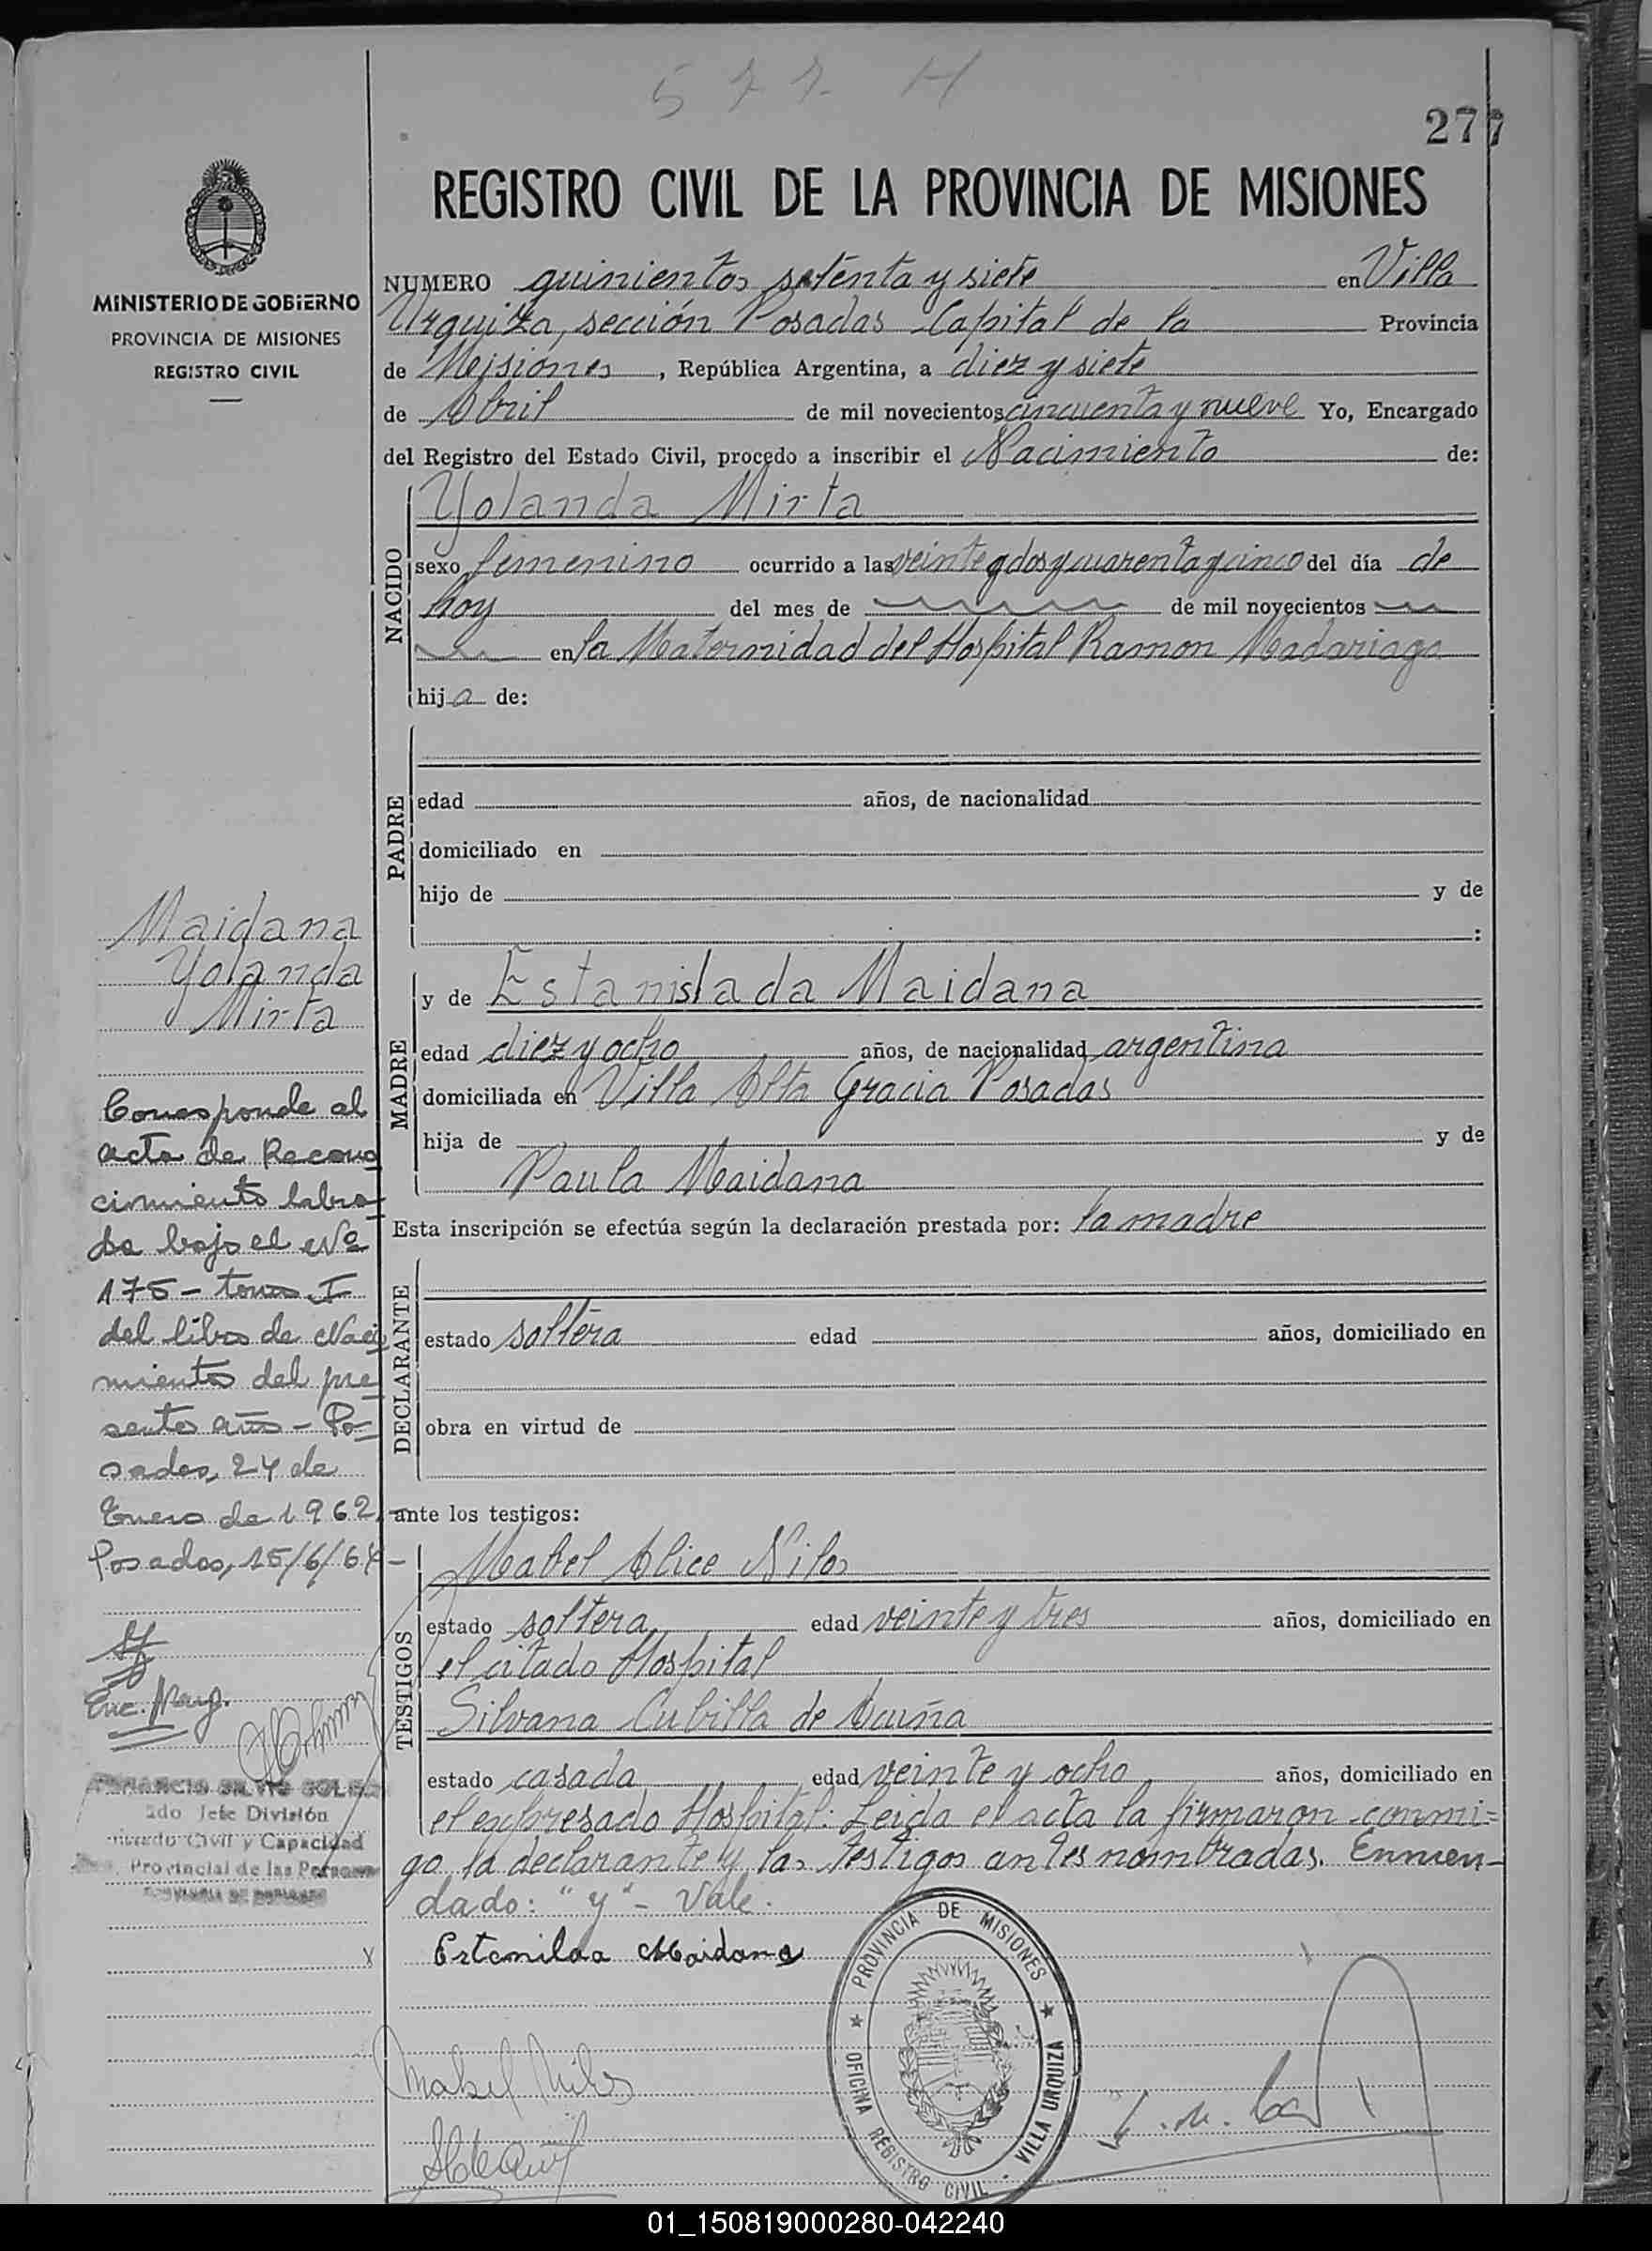 577- H
277
REGISTRO CIVIL DE LA PROVINCIA DE MISIONES
MINISTERIO DE GOBIERNO
PROVINCIA DE MISIONES
REGISTRO CIVIL
NUMERO quinientos setenta y siete en Villa
Urquiza, sección Posadas Capital de la Provincia
de Misiones, República Argentina, a diez y siete
de Abril de mil novecientos cincuenta y nueve Yo, Encargado
del Registro del Estado Civil, procedo a inscribir el Nacimiento de:
NACIDO
Yolanda Mirta
sexo femenino ocurrido a las veinte y dos y cuarenta y cinco del día de
hoy del mes de de mil novecientos
en la Maternidad del Hospital Ramon Madariaga
hija de:
PADRE
edad años, de nacionalidad
domiciliado en
hijo de y de
:
MADRE
y de Estanislada Maidana
edad diez y ocho años, de nacionalidad argentina
domiciliada en Villa Alta Gracia Posadas
hija de y de
Paula Maidana
Esta inscripción se efectúa según la declaración prestada por: la madre
DECLARANTE
estado soltera edad años, domiciliado en
obra en virtud de
ante los testigos:
TESTIGOS
Mabel Alice Nilos
estado soltera edad veinte y tres años, domiciliado en
el citado Hospital
Silvana Cubilla de Acuña
estado casada edad veinte y ocho años, domiciliado en
el expresado Hospital: Leida el acta la firmaron conmi=
go la declarante y las testigos antes nombradas. Enmen-
dado: "y" - Vale.
x Estanilaa Maidana
Mabel Nilos
PROVINCIA DE MISIONES
OFICINA REGISTRO CIVIL - VILLA URQUIZA
Maidana
Yolanda
Mirta
Corresponde al
acta de Recono
cimiento labra
da bajo el Nº
175 - tomo I
del libro de Naci
miento del pre
sente año - Po=
sadas, 24 de
Enero de 1962
Posadas, 15/6/64-
Enc.
SILVIO
2do Jefe División
Civil y Capacidad
Provincial de las Personas
01_150819000280-042240